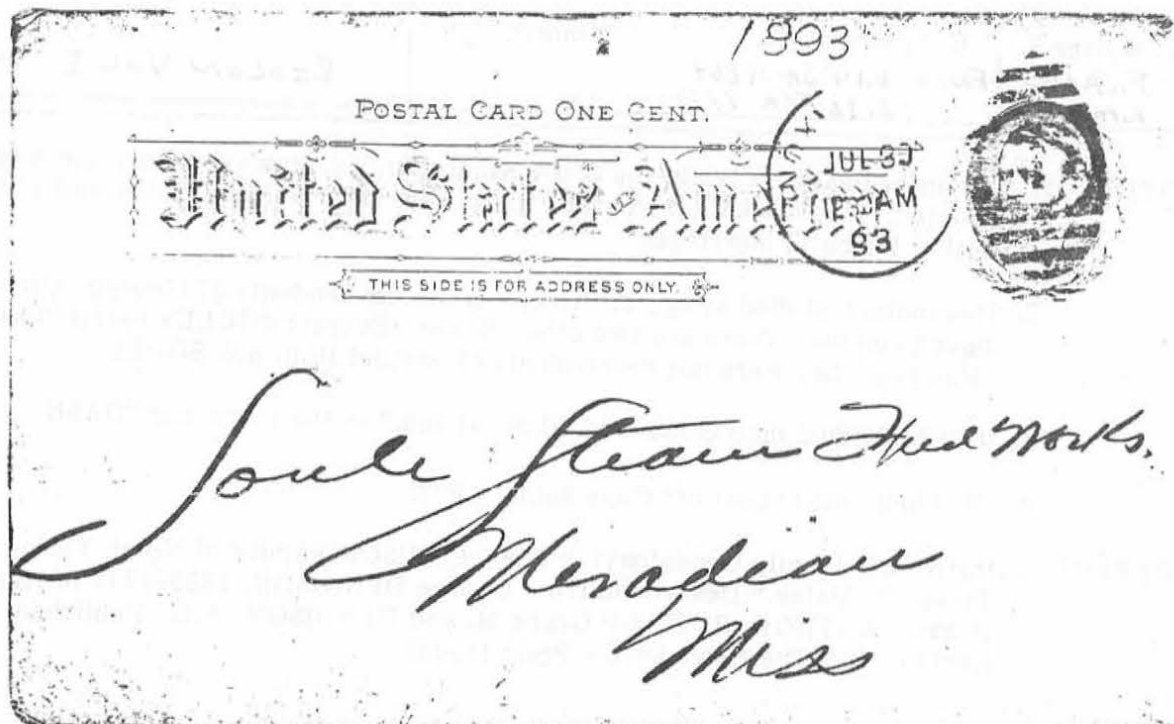 1893
POSTAL CARD ONE CENT.
United States of America
JUL 30
12-30AM
93
THIS SIDE IS FOR ADDRESS ONLY.
Soule Steam Feed Works.
Meradian
Miss